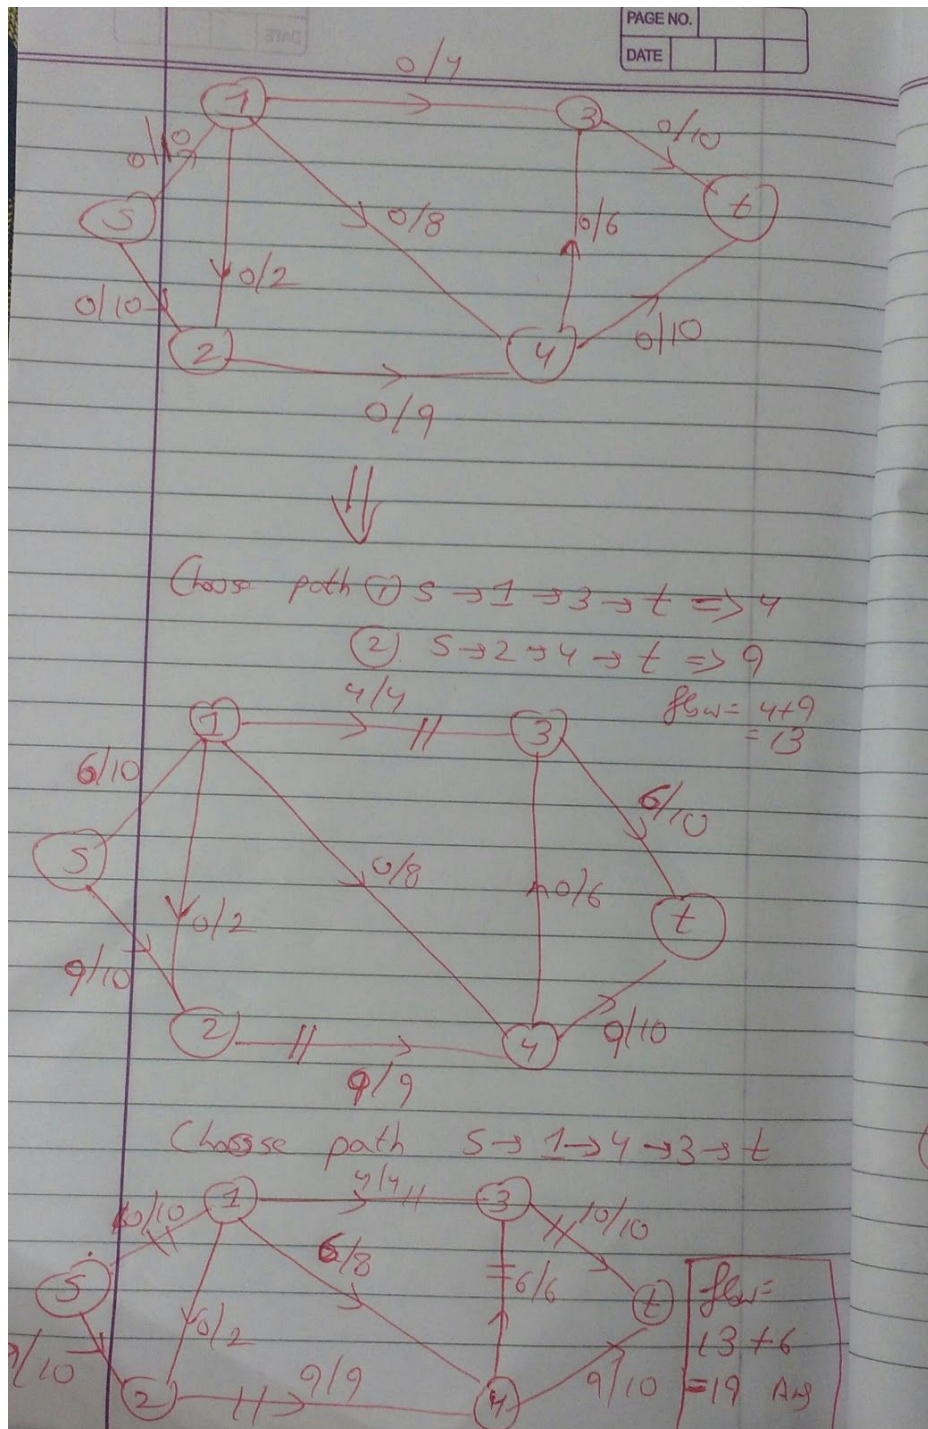 PAGE NO.
DATE
0/4
1
3
0/10
0/10
S
t
0/8
0/6
0/2
0/10
2
4
0/10
0/9
Choose path ① S → 1 → 3 → t => 4
② S → 2 → 4 → t => 9
flow = 4+9
= 13
4/4
1
3
6/10
6/10
S
0/8
0/6
t
0/2
9/10
2
4
9/10
9/9
Choose path S → 1 → 4 → 3 → t
4/4
1
3
10/10
10/10
6/8
S
6/6
t
flow =
0/2
13 + 6
/10
9/9
9/10
= 19 Ans
2
4